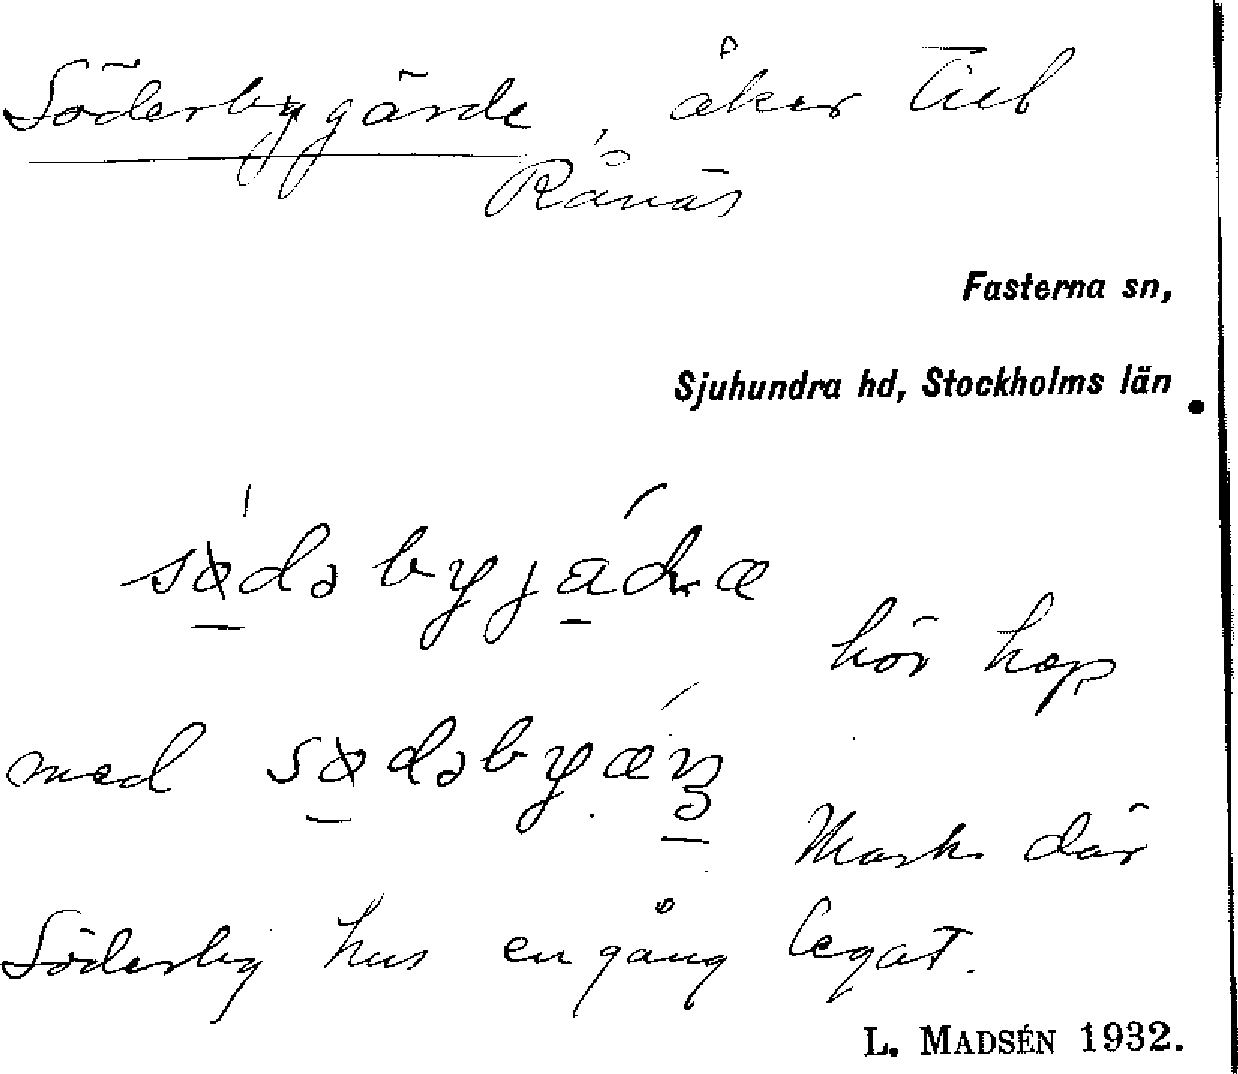 Söderbygärde, åker till
Rånäs
Fasterna sn,
Sjuhundra hd, Stockholms län
hör hop
med
Mark där
Söderby hus en gång legat.
L. MADSÉN 1932.